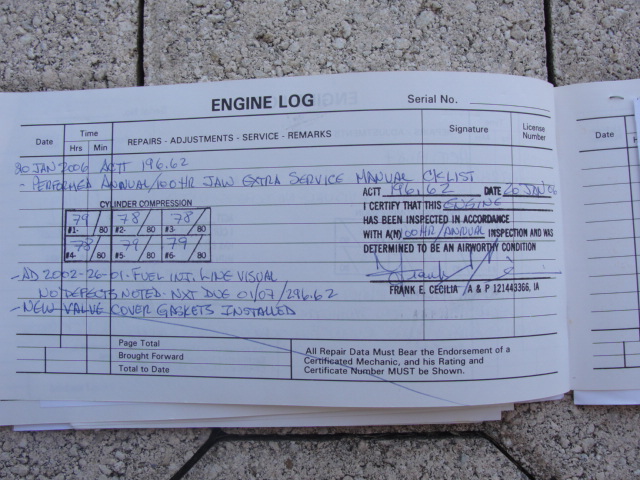 ENGINE LOG
Serial No.
Date
Time
Hrs Min
REPAIRS - ADJUSTMENTS - SERVICE - REMARKS
Signature
License Number
Date
20 JAN 2006 ACTT 196.62
- PERFORMED ANNUAL/100 HR IAW EXTRA SERVICE MANUAL CKLIST
ACTT 196.62 DATE 20 JAN 06
I CERTIFY THAT THIS ENGINE
HAS BEEN INSPECTED IN ACCORDANCE
WITH A(N) 100 HR/ANNUAL INSPECTION AND WAS
DETERMINED TO BE AN AIRWORTHY CONDITION
FRANK E. CECILIA / A & P 121443366, IA
CYLINDER COMPRESSION
79 78 78
#1- /80 #2- /80 #3- /80
78 79 79
#4- /80 #5- /80 #6- /80
- AD 2002-26-01 FUEL INJ. LINE VISUAL
NO DEFECTS NOTED. NXT DUE 01/07/296.62
- NEW VALVE COVER GASKETS INSTALLED
Page Total
Brought Forward
Total to Date
All Repair Data Must Bear the Endorsement of a
Certificated Mechanic, and his Rating and
Certificate Number MUST be Shown.